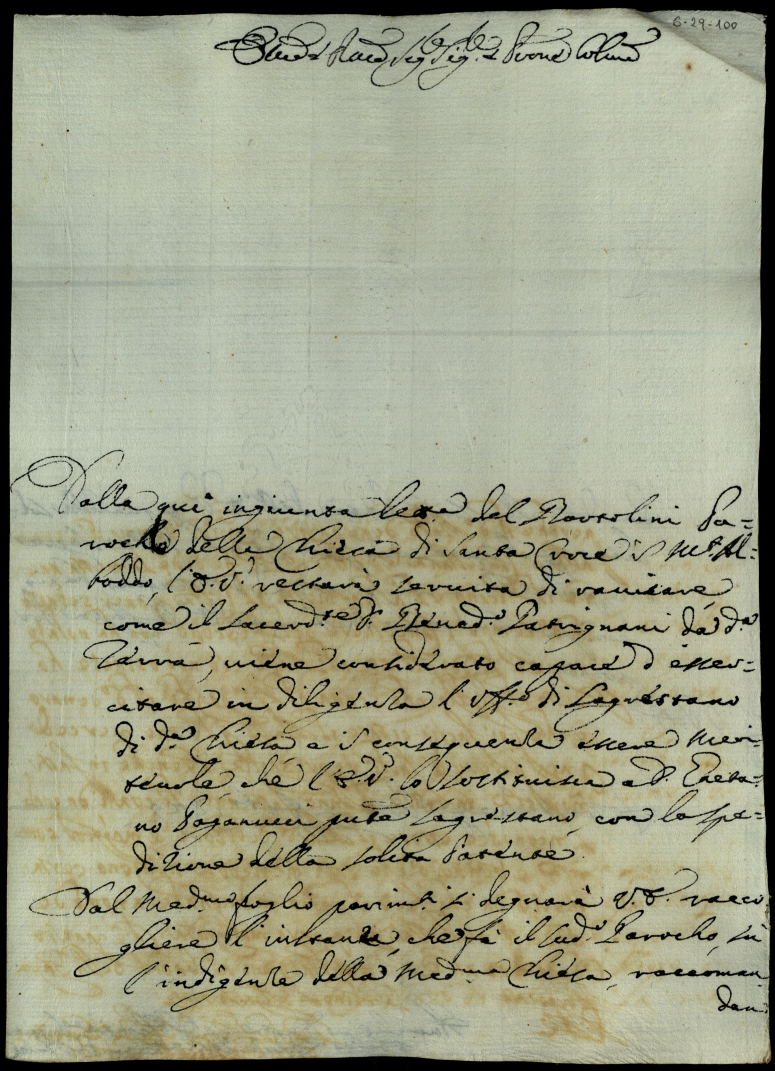 6-29-100
Sig.re Sig.re e Prone Colmo
Dalla qui ingiunta lettra del Bortolini Pa=
rocho della Chiesa di Santa Croce i S Mte Al=
boddo, l'E.V. restarà servita di ravisare
come il Sacerdte D. Bened.o Patrignani da da
Terra, viene considerato capace d'esser=
citare in diligenza l'Uff.o di Sagrestano
di da Chiesa e i conseguenza essere meri=
tevole, che l'E.V. lo sostituisca a D. Gaeta=
no Paganucci pnte Sagrestano, con la spe=
dizione della solita Patente.
Dal Medmo foglio parimti si degnarà V.E. racco
gliere l'instanza, che fà il sudo Parocho, su
l'indigenza della Medma Chiesa, raccoman
dan